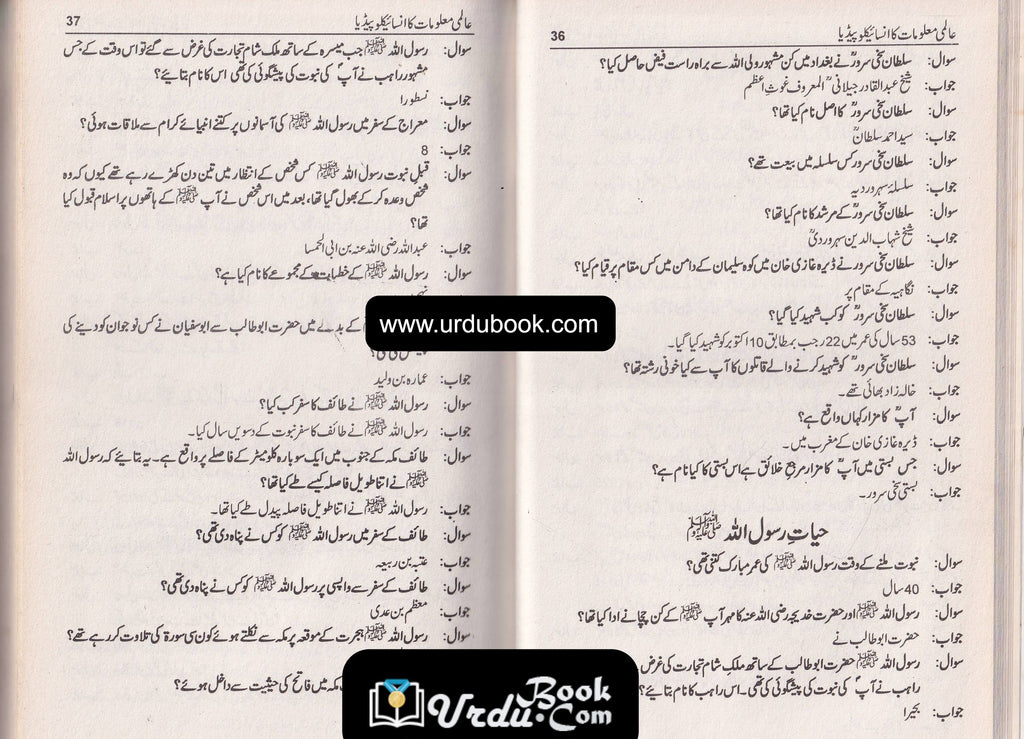 عالمی معلومات کا انسائیکلوپیڈیا 36
سوال: سلطان سخی سرورؒ نے بغداد میں کن مشہور ولی اللہ سے براہ راست فیض حاصل کیا؟
جواب: شیخ عبدالقادر جیلانیؒ المعروف غوثِ اعظم
سوال: سلطان سخی سرورؒ کا اصل نام کیا تھا؟
جواب: سید احمد سلطانؒ
سوال: سلطان سخی سرورؒ کس سلسلہ میں بیعت تھے؟
جواب: سلسلۂ سہروردیہ
سوال: سلطان سخی سرورؒ کے مرشد کا نام کیا تھا؟
جواب: شیخ شہاب الدین سہروردیؒ
سوال: سلطان سخی سرورؒ نے ڈیرہ غازی خان میں کوہ سلیمان کے دامن میں کس مقام پر قیام کیا؟
جواب: نگاہیہ کے مقام پر
سوال: سلطان سخی سرورؒ کو کب شہید کیا گیا؟
جواب: 53 سال کی عمر میں 22 رجب بمطابق 10 اکتوبر کو شہید کیا گیا۔
سوال: سلطان سخی سرورؒ کو شہید کرنے والے قاتلوں کا آپ سے کیا خونی رشتہ تھا؟
جواب: خالہ زاد بھائی تھے۔
سوال: آپؒ کا مزار کہاں واقع ہے؟
جواب: ڈیرہ غازی خان کے مغرب میں۔
سوال: جس بستی میں آپؒ کا مزار مرجع خلائق ہے اس بستی کا کیا نام ہے؟
جواب: بستی سخی سرور۔
حیاتِ رسول اللہ ﷺ
سوال: نبوت ملنے کے وقت رسول اللہ ﷺ کی عمر مبارک کتنی تھی؟
جواب: 40 سال
سوال: رسول اللہ ﷺ اور حضرت خدیجہ رضی اللہ عنہ کا مہر آپ ﷺ کے کن چچا نے ادا کیا تھا؟
جواب: حضرت ابوطالب نے
سوال: رسول اللہ ﷺ حضرت ابوطالب کے ساتھ ملکِ شام تجارت کی غرض
راہب نے آپؐ کی نبوت کی پیشگوئی کی تھی۔ اس راہب کا نام بتایئے؟
جواب: بحیرا
عالمی معلومات کا انسائیکلوپیڈیا 37
سوال: رسول اللہ ﷺ جب میسرہ کے ساتھ ملک شام تجارت کی غرض سے گئے تو اس وقت کے جس
مشہور راہب نے آپؐ کی نبوت کی پیشگوئی کی تھی، اس کا نام بتایئے؟
جواب: نسطورا
سوال: معراج کے سفر میں رسول اللہ ﷺ کی آسمانوں پر کتنے انبیائے کرام سے ملاقات ہوئی؟
جواب: 8
سوال: قبلِ نبوت رسول اللہ ﷺ کس شخص کے انتظار میں تین دن کھڑے رہے تھے کیوں کہ وہ
شخص وعدہ کر کے بھول گیا تھا، بعد میں اس شخص نے آپ ﷺ کے ہاتھوں پر اسلام قبول کیا
تھا؟
جواب: عبداللہ رضی اللہ عنہ بن ابی الحمسا
سوال: رسول اللہ ﷺ کے خطبات کے مجموعے کا نام کیا ہے؟
جواب:
سوال: کے بدلے میں حضرت ابوطالب سے ابوسفیان نے کس نوجوان کو دینے کی
جواب: عمارہ بن ولید
سوال: رسول اللہ ﷺ نے طائف کا سفر کب کیا؟
جواب: رسول اللہ ﷺ نے طائف کا سفر نبوت کے دسویں سال کیا۔
سوال: طائف مکہ کے جنوب میں ایک سو بارہ کلومیٹر کے فاصلے پر واقع ہے۔ یہ بتایئے کہ رسول اللہ
ﷺ نے اتنا طویل فاصلہ کیسے طے کیا تھا؟
جواب: رسول اللہ ﷺ نے اتنا طویل فاصلہ پیدل طے کیا تھا۔
سوال: طائف کے سفر میں رسول اللہ ﷺ کو کس نے پناہ دی تھی؟
جواب: عتبہ بن ربیعہ
سوال: طائف کے سفر سے واپسی پر رسول اللہ ﷺ کو کس نے پناہ دی تھی؟
جواب: معطم بن عدی
سوال: رسول اللہ ﷺ ہجرت کے موقعہ پر مکہ سے نکلتے ہوئے کون سی سورۃ کی تلاوت کر رہے تھے؟
مکہ میں فاتح کی حیثیت سے داخل ہوئے؟
www.urdubook.com
UrduBook.Com